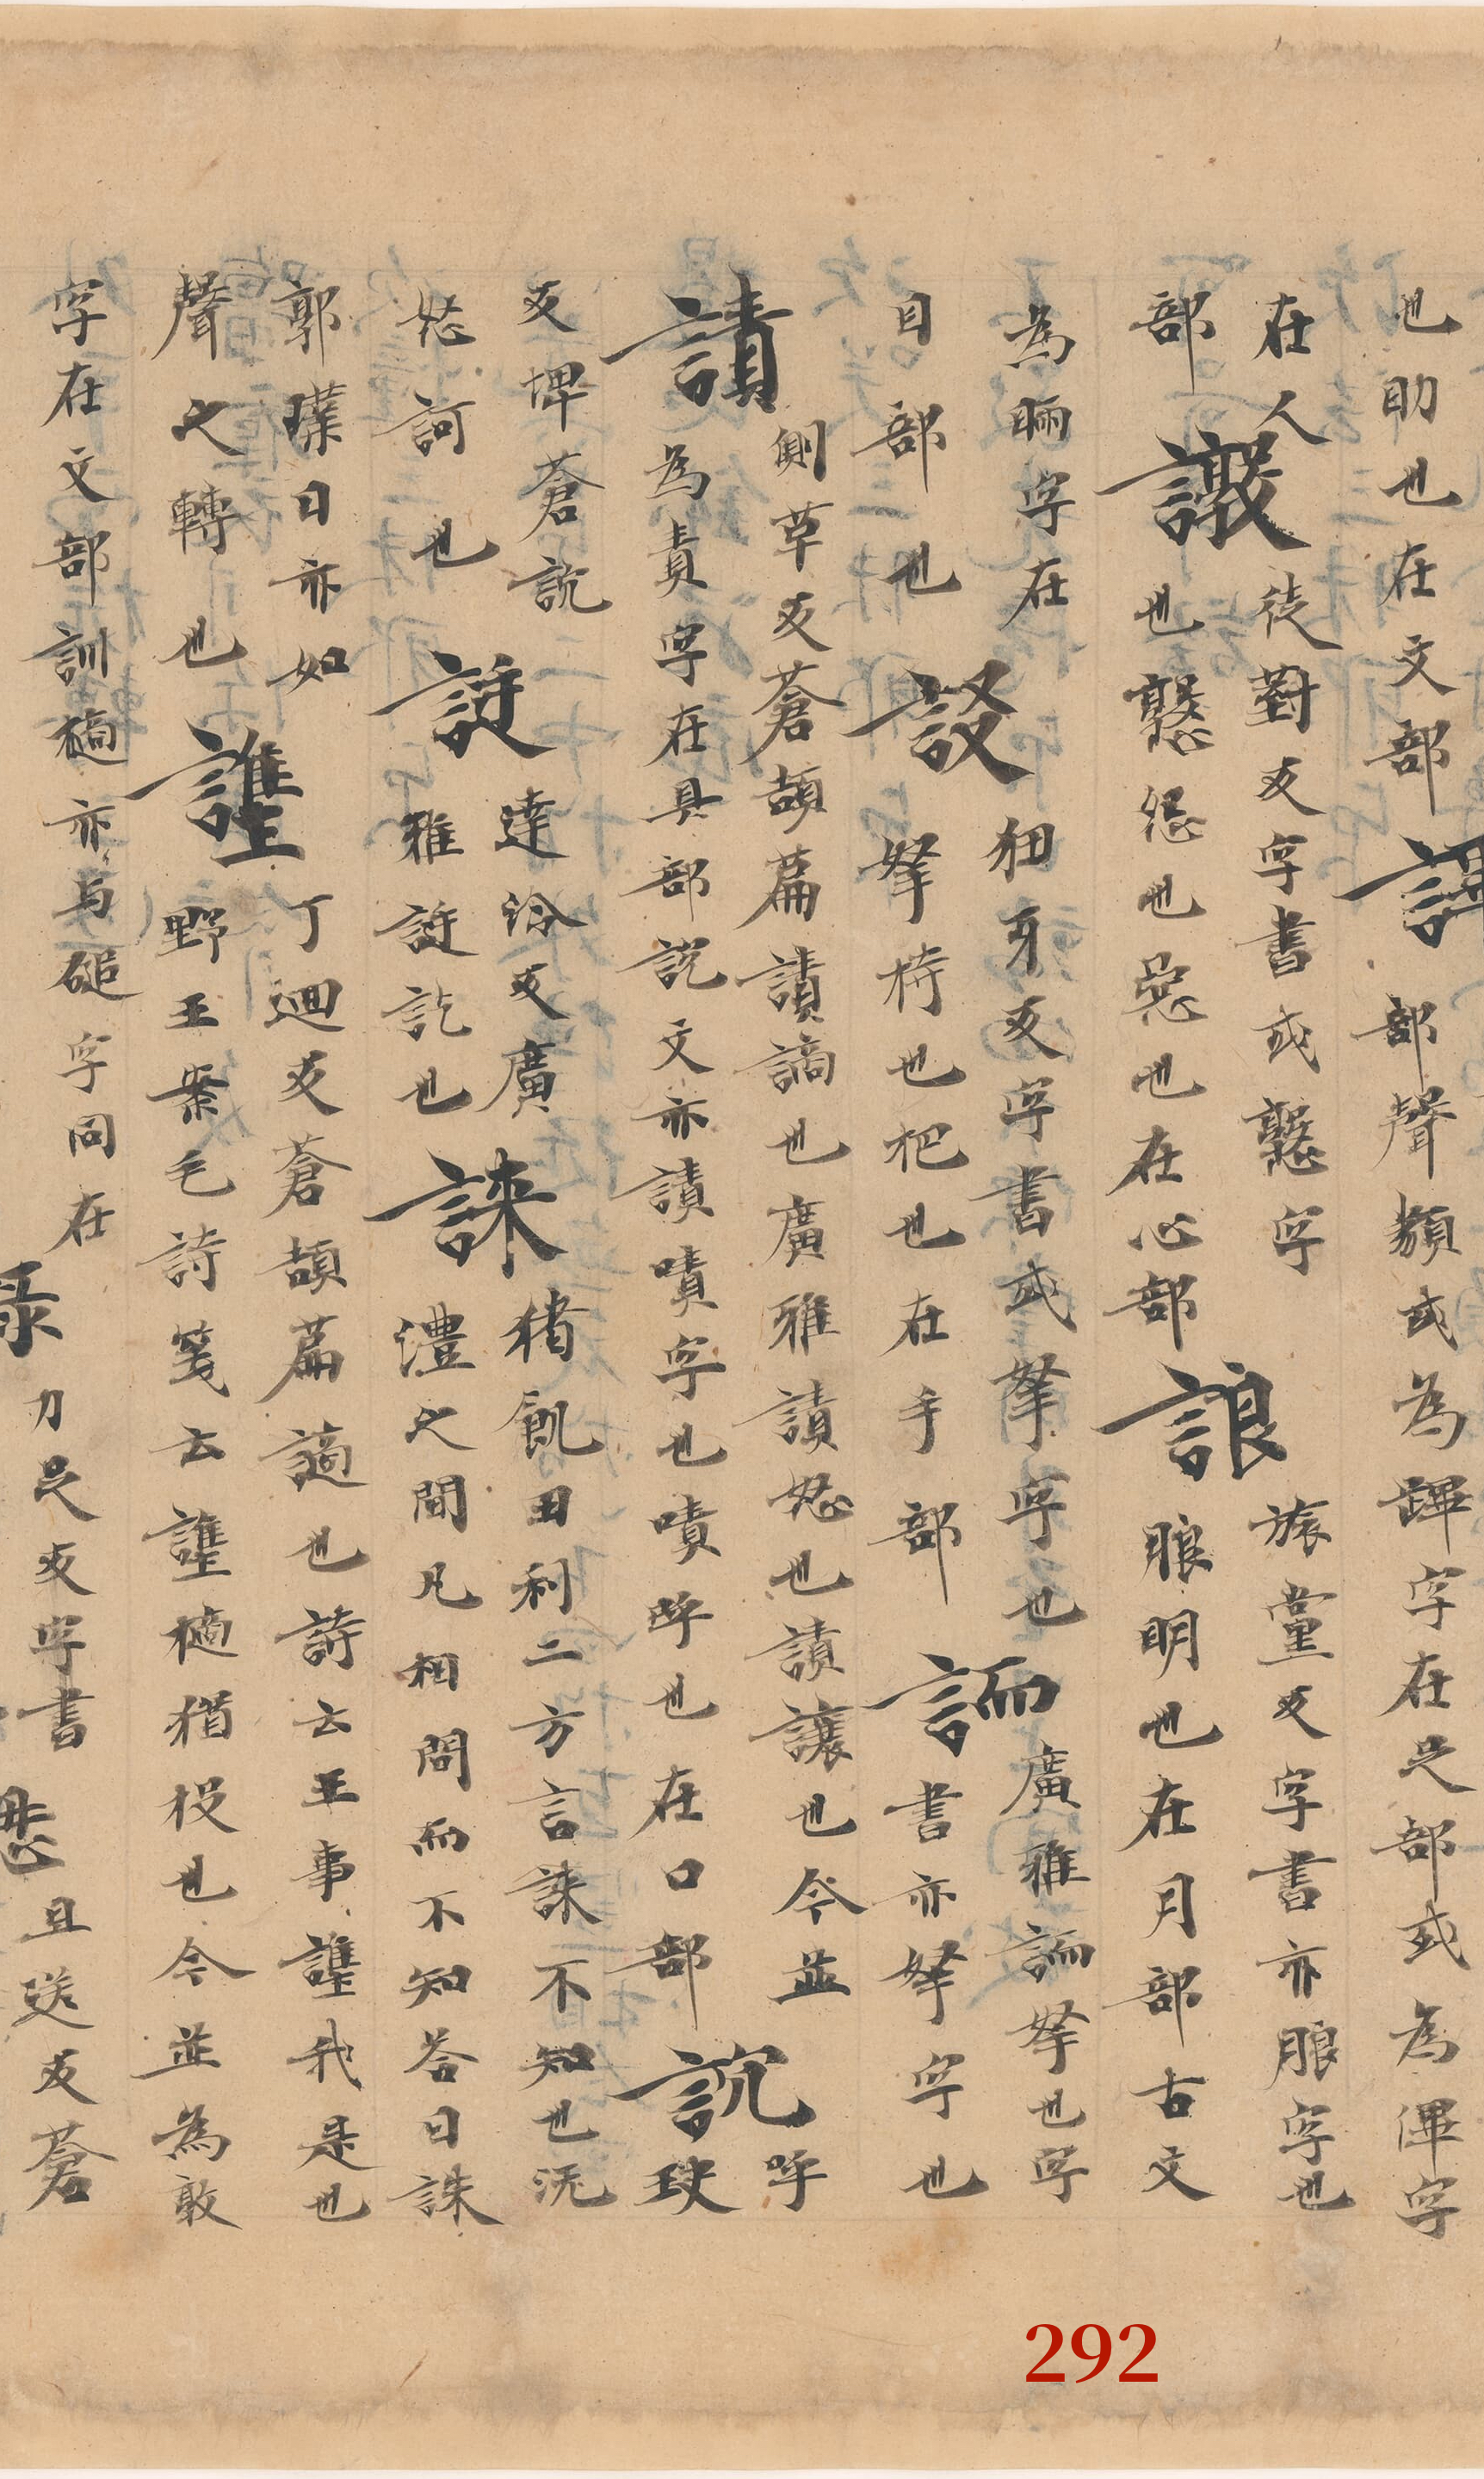 也助也在文部
部聲類或為字在足部或為渾字
在人
部
譈
徒對反字書或憝字
也憝怨也惡也在心部
誏
旅黨反字書亦朖字也
朖明也在月部古文
為字在
目部也
狃牙反字書或拏字也
拏持也把也在手部
廣雅拏也字
書亦拏字也
謮
側革反蒼頡篇謮謫也廣雅謮怒也謮讓也今並
為責字在具部說文亦謮嘖字也嘖呼也在口部
呼
玦
反埤蒼
怒訶也
達泠反廣
雅訖也
誺
猪飢丑利二方言誺不知也沅
澧之間凡相問而不知荅曰誺
郭璞曰亦如
聲之轉也
丁迴反蒼頡篇謫也詩云王事我是也
野王案毛詩箋云擿猶投也今並為敦
字在文部訓擿亦与磓字同在
力足反字書
且送反蒼
292